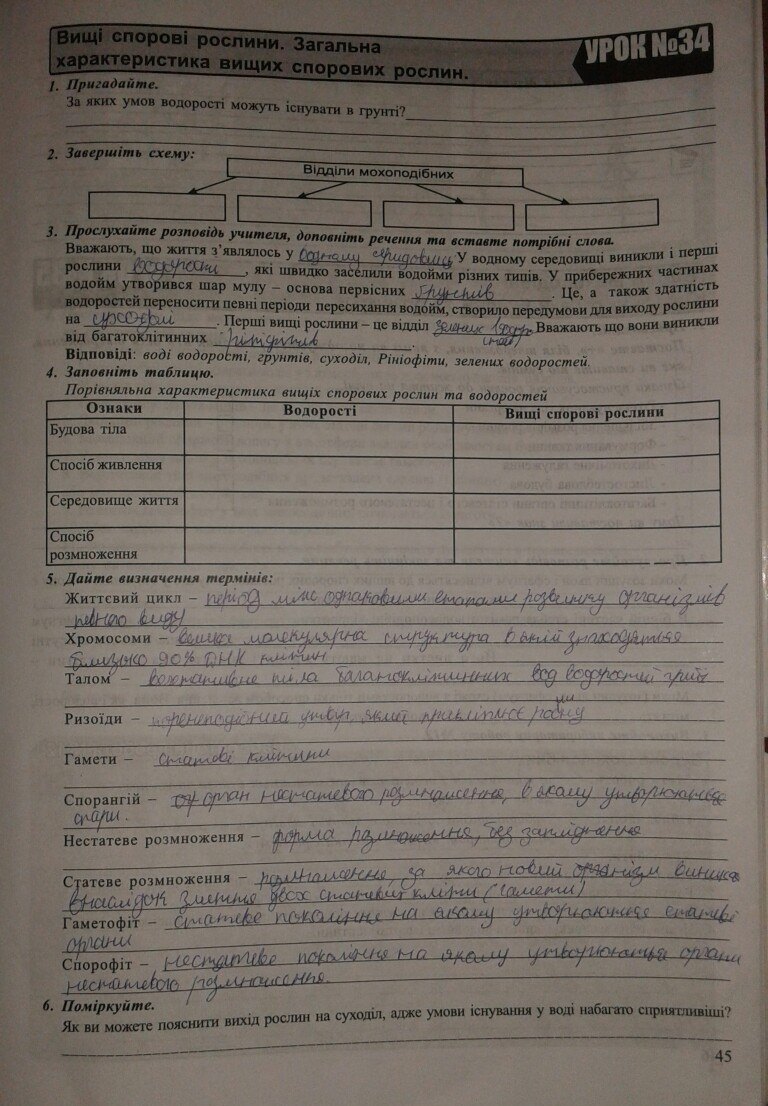 Вищі спорові рослини. Загальна
характеристика вищих спорових рослин.
УРОК №34
1. Пригадайте.
За яких умов водорості можуть існувати в грунті?
2. Завершіть схему:
Відділи мохоподібних
3. Прослухайте розповідь учителя, доповніть речення та вставте потрібні слова.
Вважають, що життя з’явлалось у водному середовищі У водному середовищі виникли і перші
рослини водорості, які швидко заселили водойми різних типів. У прибережних частинах
водойм утворився шар мулу – основа первісних ґрунтів. Це, а також здатність
водоростей переносити певні періоди пересихання водойм, створило передумови для виходу рослини
на суходолі. Перші вищі рослини – це відділ зелених Вважають що вони виникли
від багатоклітинних
Відповіді: воді водорості, грунтів, суходіл, Рініофіти, зелених водоростей.
4. Заповніть таблицю.
Порівняльна характеристика вищіх спорових рослин та водоростей
Ознаки Водорості Вищі спорові рослини
Будова тіла
Спосіб живлення
Середовище життя
Спосіб
розмноження
5. Дайте визначення термінів:
Життєвий цикл – період між однаковими етапами розвитку організмів
певного виду
Хромосоми – велика молекулярна структура в якій знаходяться
близько 90% ДНК клітин
Талом – вегетативне тіла багатоклітинних вод водоростей гриби
Ризоїди – коренеподібний утвір, який прикріплює
Гамети – статеві клітини
Спорангій – орган нестатевого розмноження, в якому утворюються
спори.
Нестатеве розмноження – форма розмноження, без запліднення
Статеве розмноження – розмноження за якого новий організм виникає
внаслідок злиття двох статевих кліти (гамети)
Гаметофіт – статеве покоління на якому утворюються статеві
органи
Спорофіт – нестатеве покоління на якому утворюються органи
нестатевого розмноження.
6. Поміркуйте.
Як ви можете пояснити вихід рослин на суходіл, адже умови існування у воді набагато сприятливіші?
45